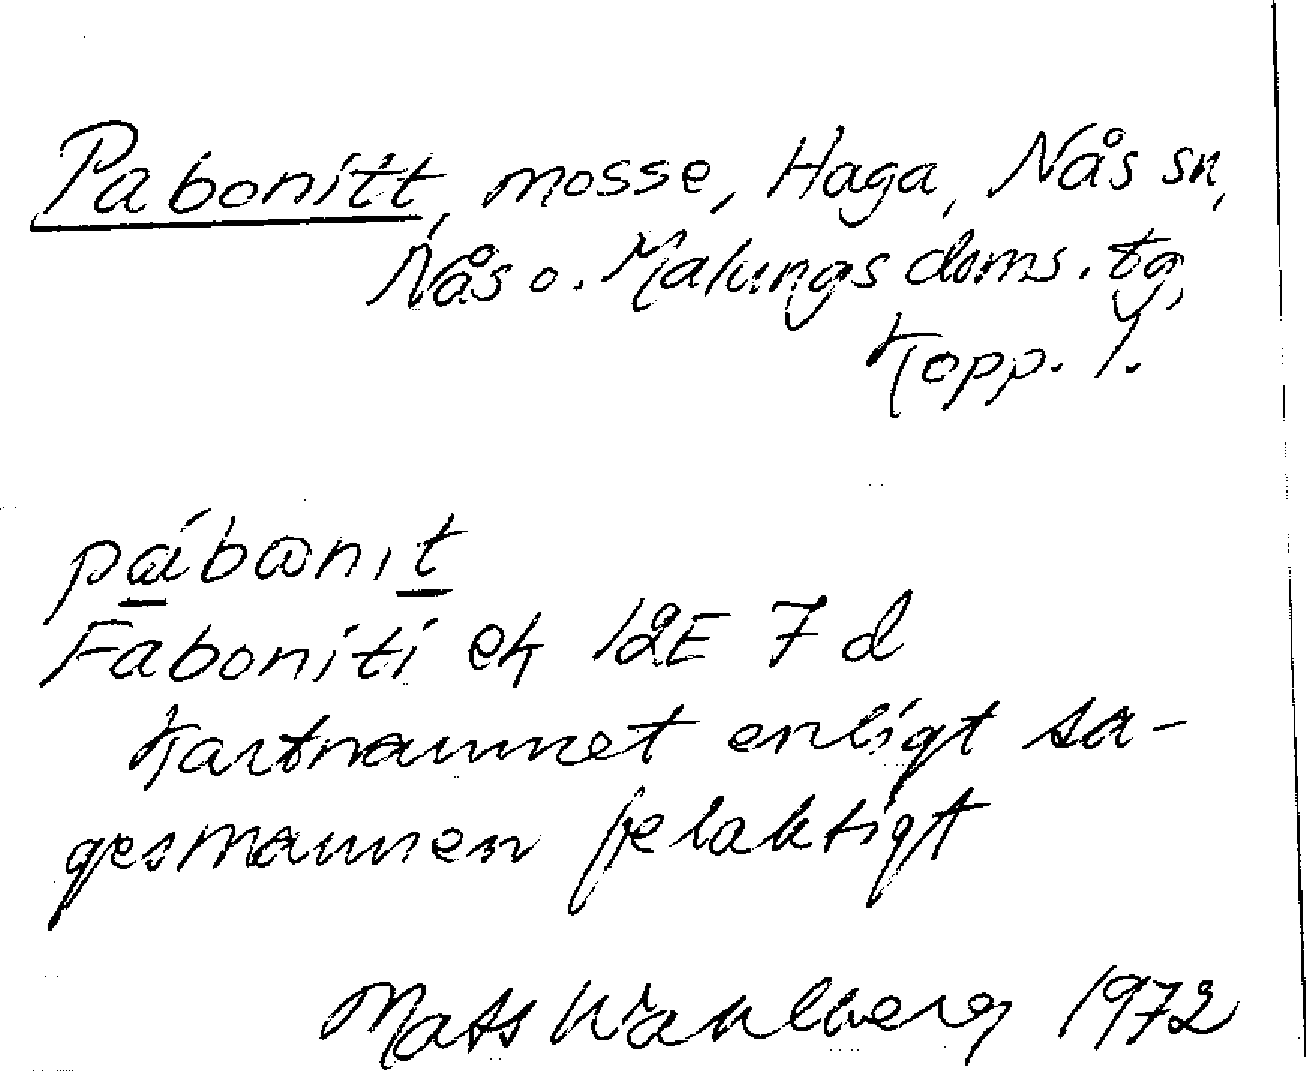 Pabonitt, mosse, Haga, Nås sn,
Nås o. Malungs doms. tg,
Kopp. l.
pábωnıt
Faboniti ek 12E 7d
Kartnamnet enligt sa-
gesmannen felaktigt
Mats Wahlberg 1972